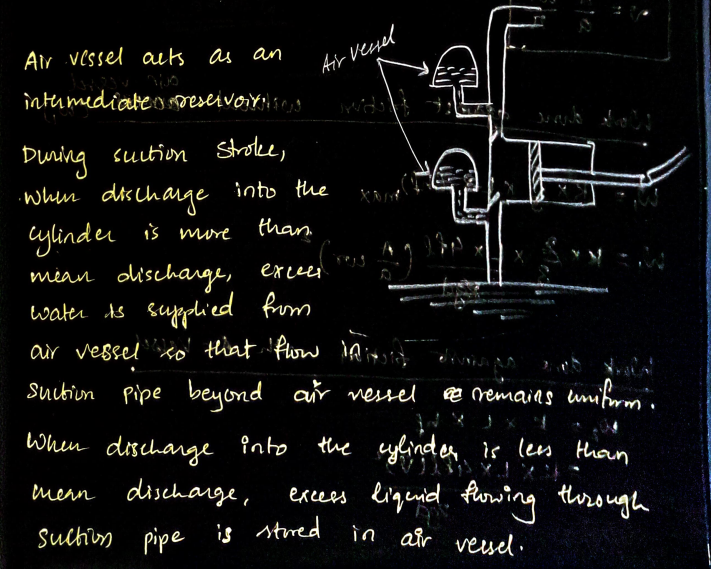 Air vessel acts as an
Air vessel
intermediate reservoir.
During suction stroke,
when discharge into the
cylinder is more than
mean discharge, excess
water is supplied from
air vessel so that flow in
suction pipe beyond air vessel remains uniform.
When discharge into the cylinder is less than
mean discharge, excess liquid flowing through
suction pipe is stored in air vessel.